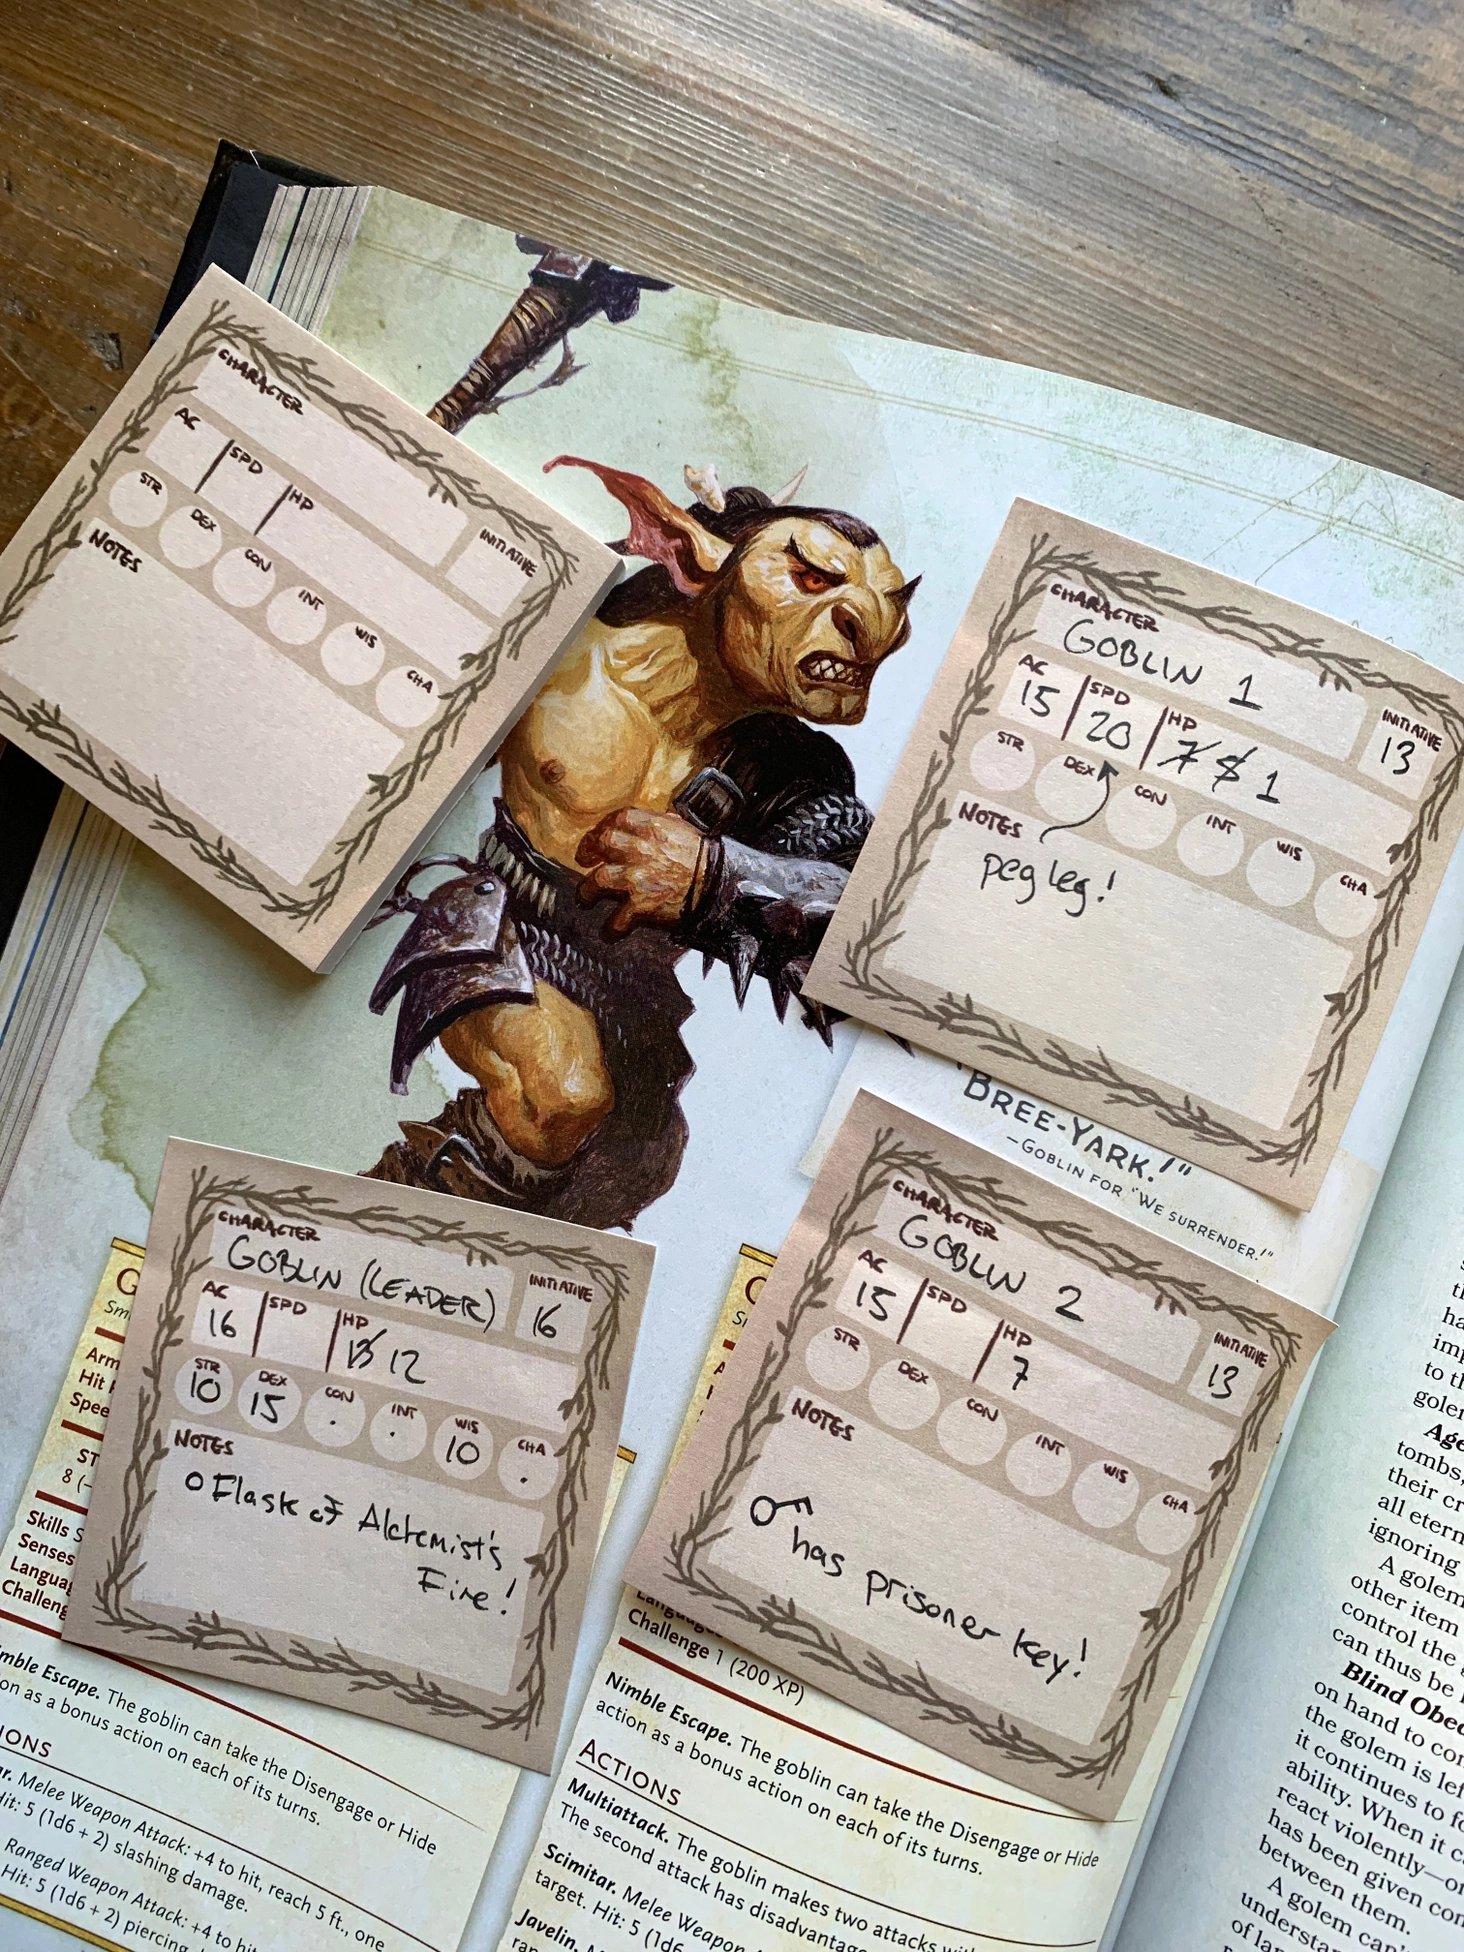 CHARACTER
AC
SPD
HP
INITIATIVE
STR
DEX
CON
INT
WIS
CHA
NOTES
CHARACTER
GOBLIN 1
AC
15
SPD
20
HP
7 5 1
INITIATIVE
13
STR
DEX
CON
INT
WIS
CHA
NOTES
peg leg!
"BREE-YARK!"
—GOBLIN FOR "WE SURRENDER!"
CHARACTER
GOBLIN (LEADER)
AC
16
SPD
HP
13 12
INITIATIVE
16
STR
10
DEX
15
CON
INT
WIS
10
CHA
NOTES
Flask of Alchemist's
Fire!
CHARACTER
GOBLIN 2
AC
15
SPD
HP
7
INITIATIVE
13
STR
DEX
CON
INT
WIS
CHA
NOTES
has prisoner key!
G
Sm
Arm
Hit
Spee
ST
8 (–
Skills S
Senses
Langua
Challeng
mble Escape. The goblin can take the Disengage or Hide
on as a bonus action on each of its turns.
IONS
ar. Melee Weapon Attack: +4 to hit, reach 5 ft., one
Hit: 5 (1d6 + 2) slashing damage.
Ranged Weapon Attack: +4 to hit
Hit: 5 (1d6 + 2) piercing
Challenge 1 (200 XP)
Nimble Escape. The goblin can take the Disengage or Hide
action as a bonus action on each of its turns.
ACTIONS
Multiattack. The goblin makes two attacks with
The second attack has disadvantage
Scimitar. Melee Weapon
target. Hit: 5 (1d6
Javelin.
to th
goler
Age
tombs,
their cr
all etern
ignoring
A golem
other item
control the
can thus be
Blind Obed
on hand to con
the golem is lef
it continues to fo
ability. When it ca
react violently—or
has been given con
between them.
A golem can't
understan
of lan